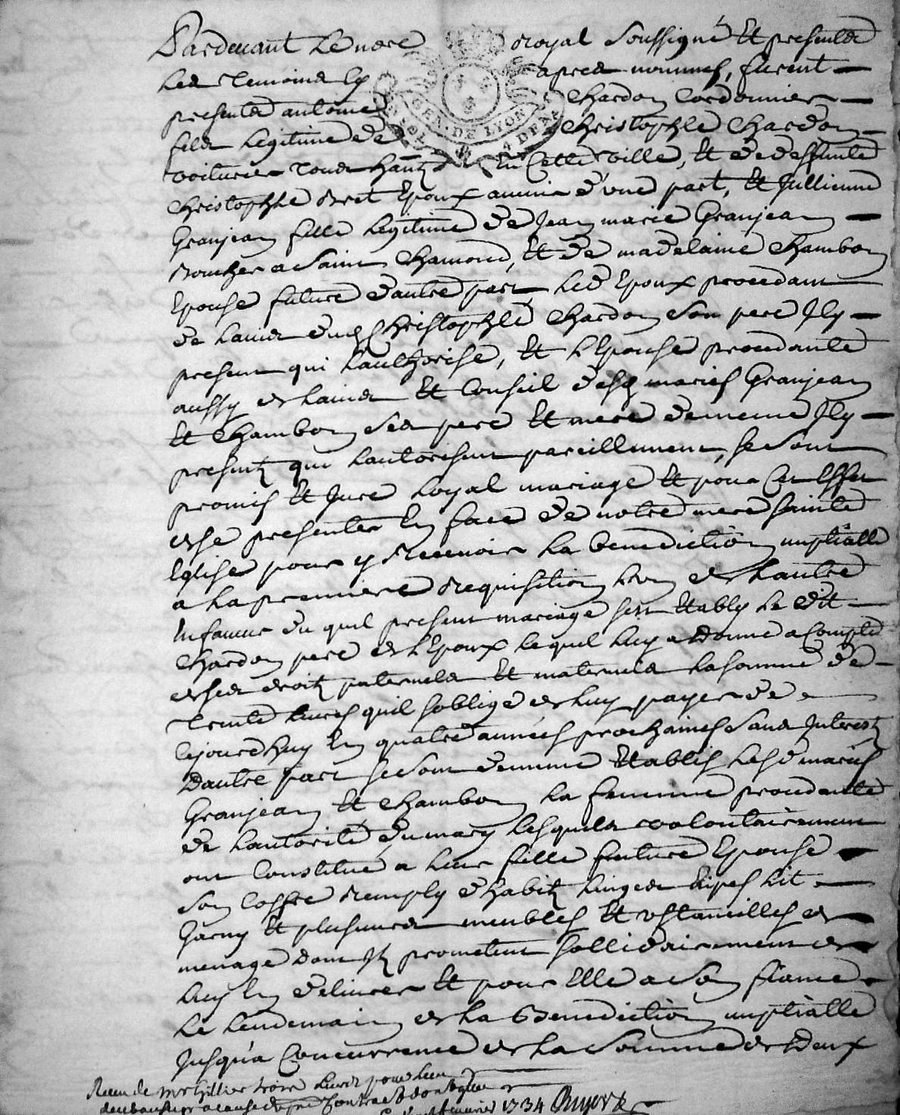 Pardevant le nore royal soussigné et presents
les temoins cy apres nommes, furent
presents antoine chardon cordonnier
fils legitime de christophle chardon
voiturier en cette ville, et de deffunte
christophle époux avenir d'une part, et Jullienne
Granjean fille legitime de Jean marie Granjean
boucher a Saint chamond, et de madelaine chambon
Epouse future d'autre part les Epoux procedant
de lavis dud christophle chardon son pere Jcy
present qui lauthorise, et l'Epouse procedante
aussy de lavis et Conseil desd mariés Granjean
et chambon ses pere et mere de meme Jcy
presents qui lautorisent pareillement, se sont
promis et Juré loyal mariage et pour Cet Effet
de se presenter En face de notre mere Sainte
Eglise pour y recevoir la benediction nuptialle
a la premiere requisition lun de lautre
En faveur du quel present mariage sest Etably le dit
chardon pere de l'Epoux lequel luy a donné a Compte
de ses droits paternels et maternels la somme de
trente livres quil soblige de luy payer de
cejourdhuy En quatre années prochaines sans Interest
Dautre part se sont de meme Etablis lesd mariés
Granjean et chambon la femme procedante
de lautorité du mary lesquels volontairement
ont Constitué a leur fille future Epouse
son Coffre remply d'habits linges nipes lit
Garny et plusieurs meubles et ustancilles de
menage dont Jls promettent sollidairement de
luy En delivrer et pour Elle a son fiancé
le lendemain de la Benediction nuptialle
Jusqu'a Concurrence de la Somme de deux
GEN. DE LYON
Receu de mr livres pour
a cause du Contract
1734